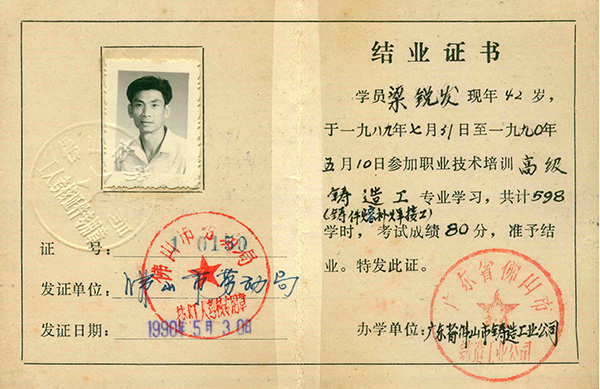 结业证书
学员梁锐发现年42岁,
于一九八九年七月31日至一九九0年
五月10日参加职业技术培训高级
铸造工专业学习,共计598
(铸件熔补焊接工)
学时,考试成绩80分,准予结
业。特发此证。
办学单位:广东省佛山市铸造工业公司
广东省佛山市
铸造工业公司
证号:10150
发证单位:佛山市劳动局
发证日期:1990年5月30日
佛山市劳动局